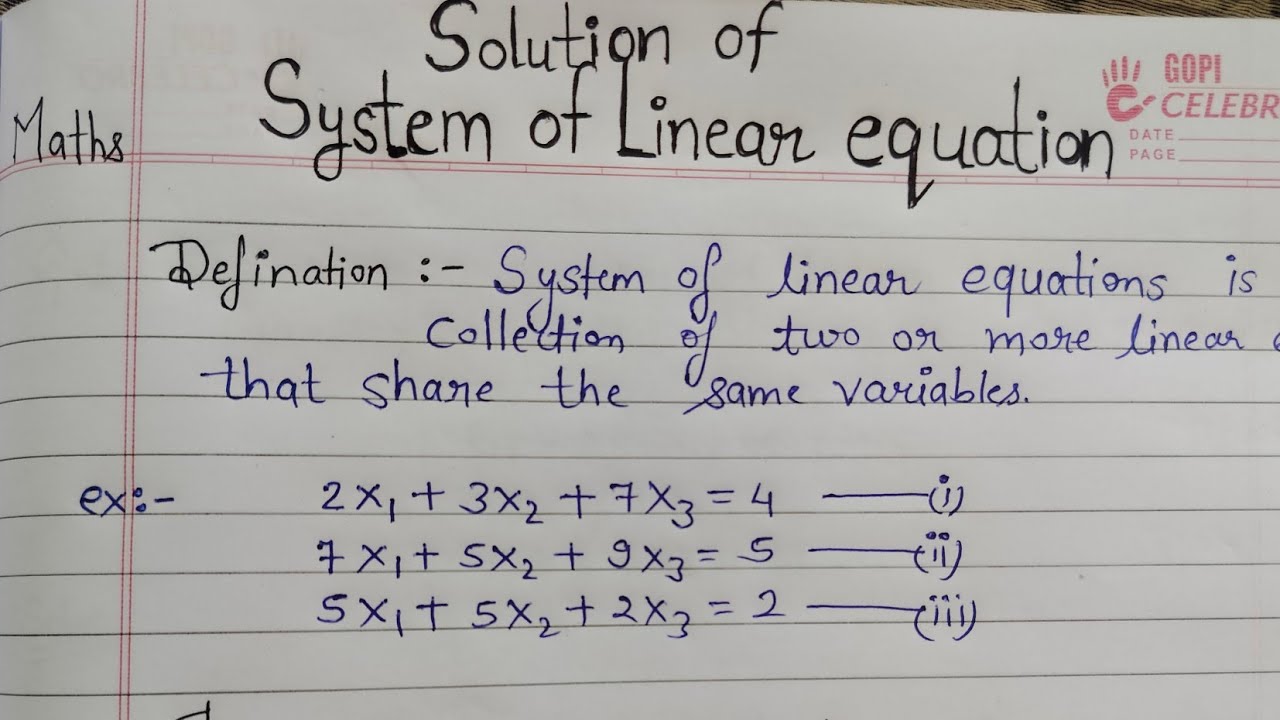 Solution of
System of Linear equation
Maths
GOPI
CELEBR
DATE
PAGE
Defination :- System of linear equations is
Collection of two or more linear
that share the same variables.
ex:- 2x₁ + 3x₂ + 7x₃ = 4 ——(i)
7x₁ + 5x₂ + 9x₃ = 5 ——(ii)
5x₁ + 5x₂ + 2x₃ = 2 ——(iii)